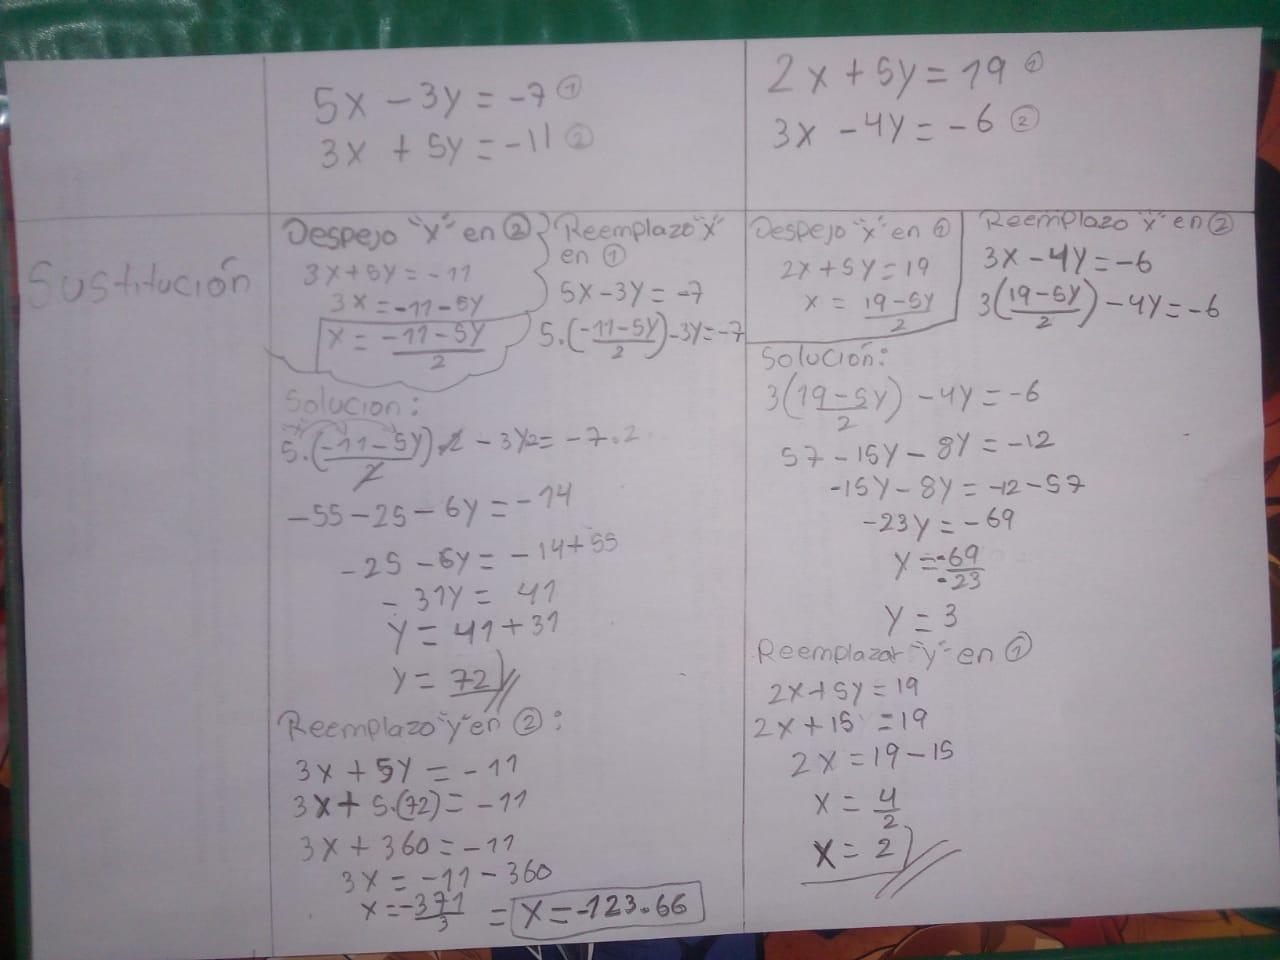 5x - 3y = -7 ①
3x + 5y = -11 ②
2x + 5y = 19 ①
3x - 4y = -6 ②
Sustitución
Despejo "x" en ②
3x + 5y = -11
3x = -11 - 5y
x = (-11 - 5y)/2
Reemplazo "x"
en ①
5x - 3y = -7
5.((-11 - 5y)/2) - 3y = -7
Solución:
5.((-11 - 5y)/2).2 - 3y2 = -7.2
-55 - 25 - 6y = -14
-25 - 6y = -14 + 55
-31y = 41
y = 41 + 31
y = 72
Reemplazo "y" en ②:
3x + 5y = -11
3x + 5.(72) = -11
3x + 360 = -11
3x = -11 - 360
x = -371/3 = x = -123.66
Despejo "x" en ①
2x + 5y = 19
x = (19 - 5y)/2
Reemplazo "x" en ②
3x - 4y = -6
3((19 - 5y)/2) - 4y = -6
Solución:
3((19 - 5y)/2) - 4y = -6
57 - 15y - 8y = -12
-15y - 8y = -12 - 57
-23y = -69
y = -69/-23
y = 3
Reemplazar "y" en ①
2x + 5y = 19
2x + 15 = 19
2x = 19 - 15
x = 4/2
x = 2